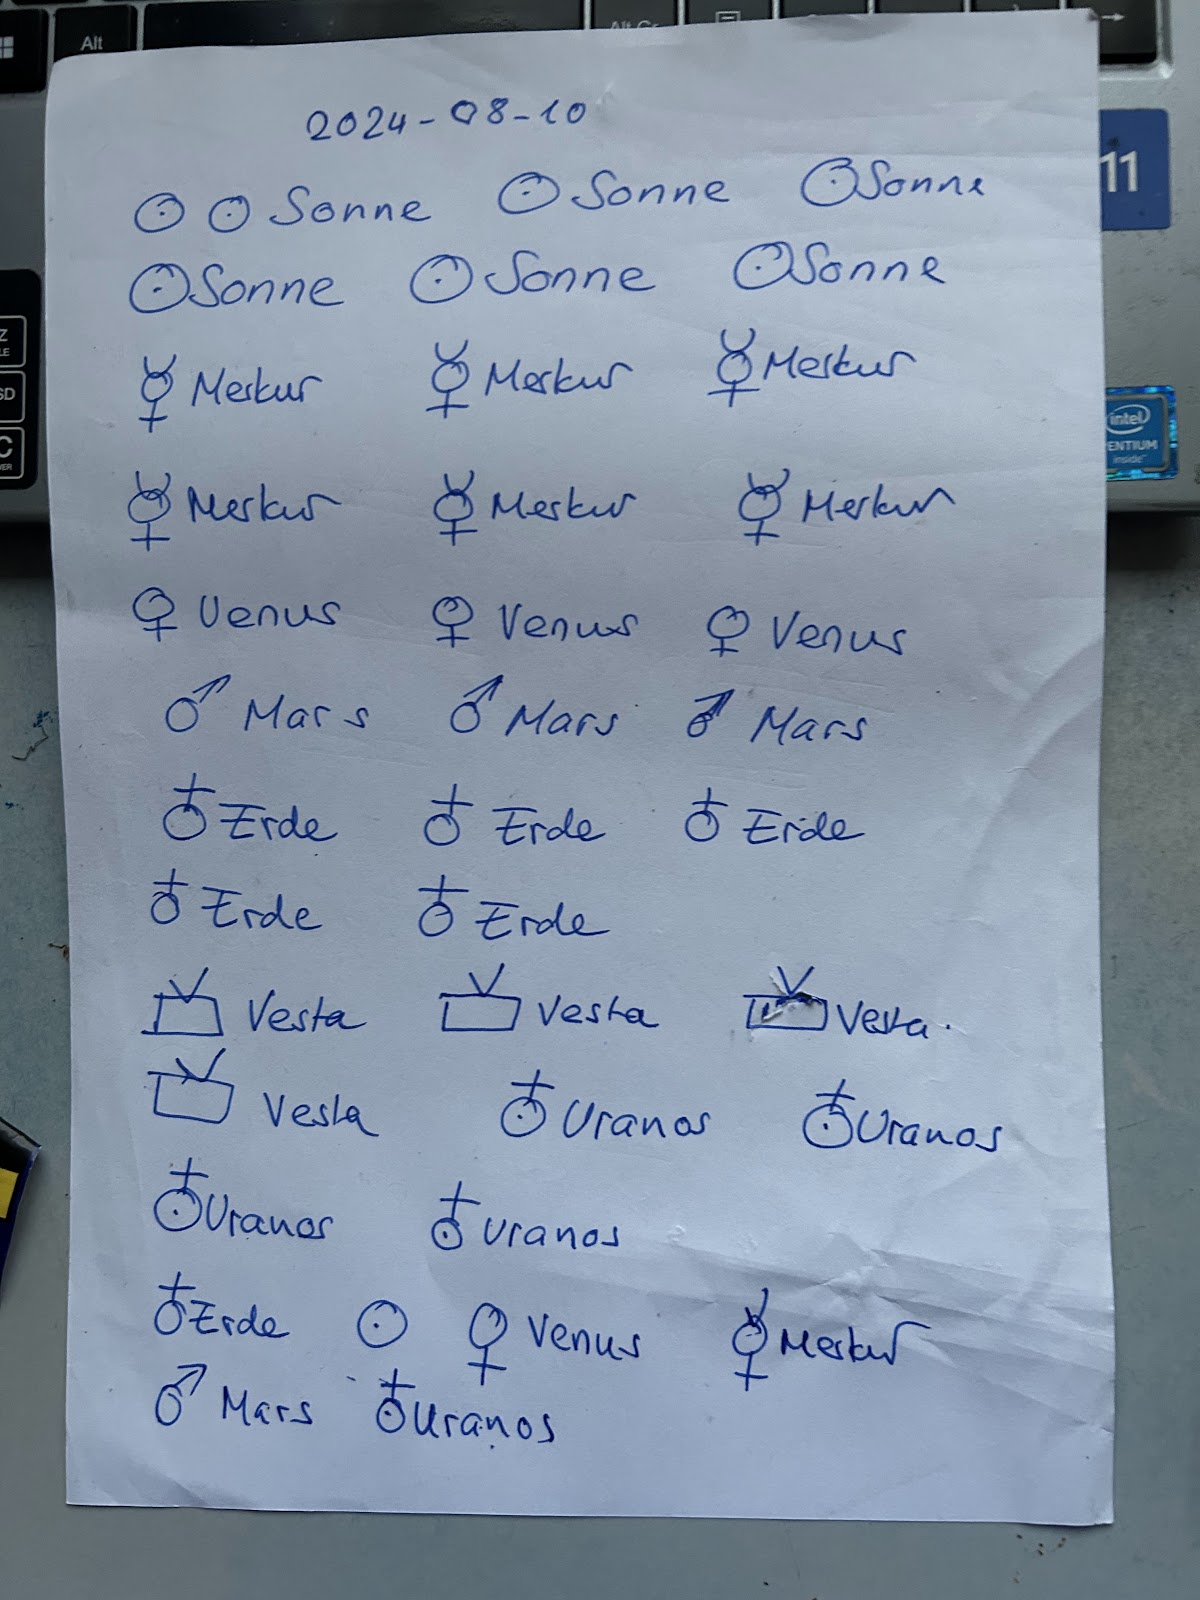 Alt
Alt Gr
11
intel
PENTIUM
inside
2024-08-10
☉ ☉ Sonne ☉ Sonne ☉ Sonne
☉ Sonne ☉ Sonne ☉ Sonne
☿ Merkur ☿ Merkur ☿ Merkur
☿ Merkur ☿ Merkur ☿ Merkur
♀ Venus ♀ Venus ♀ Venus
♂ Mars ♂ Mars ♂ Mars
♁ Erde ♁ Erde ♁ Erde
♁ Erde ♁ Erde
Vesta Vesta Vesta
Vesta Uranos Uranos
Uranos Uranos
♁ Erde ☉ ♀ Venus ☿ Merkur
♂ Mars Uranos